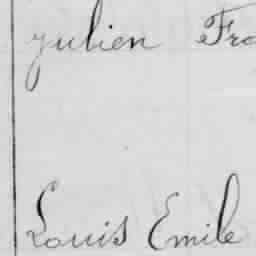 Julien Fra
Louis Emile